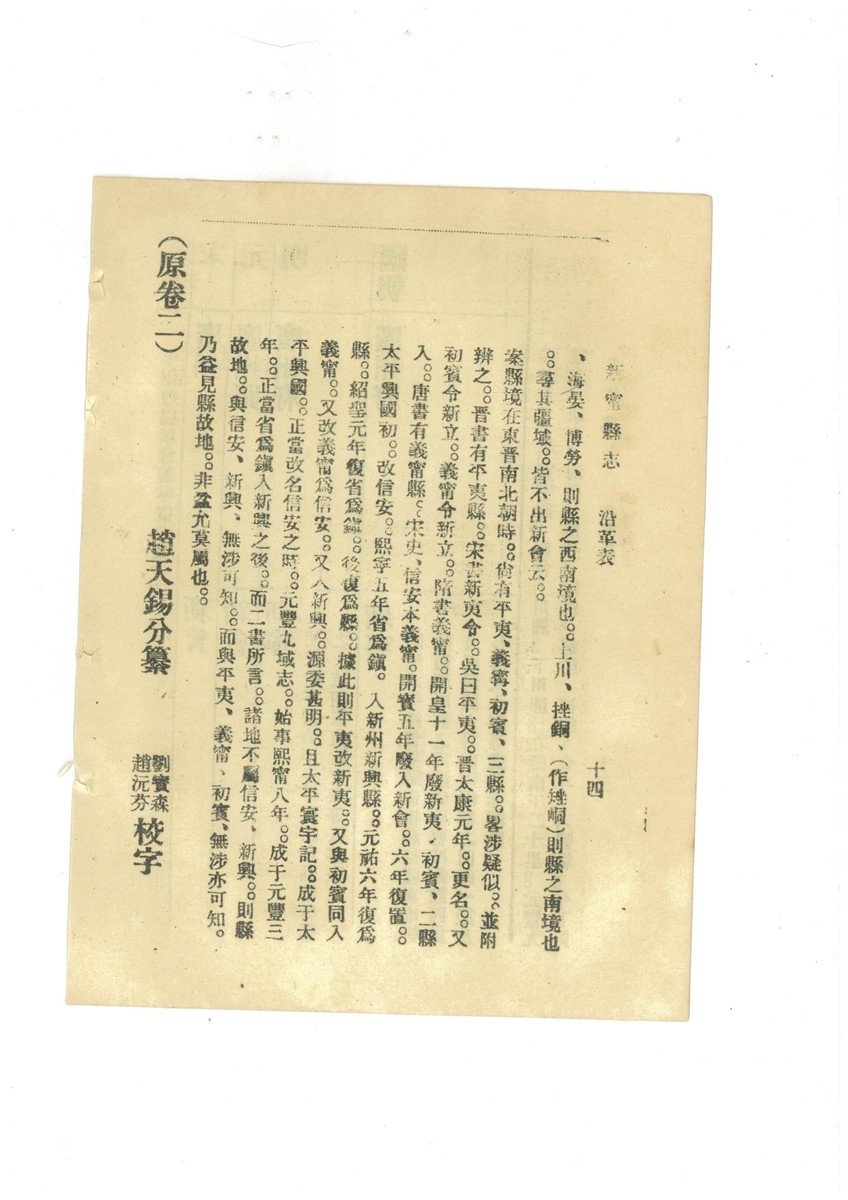 新甯縣志　沿革表　十四
、海晏、博勞、則縣之西南境也。。上川、挫銅、（作矬峒）則縣之南境也
。。尋其疆域。。皆不出新會云。。
案縣境在東晉南北朝時。。尙有平夷、義甯、初賓、三縣。。畧涉疑似。。並附
辨之。。晉書有平夷縣。。宋書新夷令。。吳曰平夷。。晉太康元年。。更名。。又
初賓令新立。。義甯令新立。。隋書義甯。。開皇十一年廢新夷、初賓、二縣
入。。唐書有義甯縣。。宋史、信安本義甯。開寶五年廢入新會。。六年復置。。
太平興國初。。改信安。。熙寧五年省爲鎭。入新州新興縣。。元祐六年復爲
縣。。紹聖元年復省爲鎭。。後復爲縣。。據此則平夷改新夷。。又與初賓同入
義甯。。又改義甯爲信安。。又入新興。。源委甚明。。且太平寰宇記。。成于太
平興國。。正當改名信安之時。。元豐九域志。。始事熙甯八年。。成于元豐三
年。。正當省爲鎭入新興之後。。而二書所言。。諸地不屬信安、新興。。則縣
故地。。與信安、新興、無涉可知。。而與平夷、義甯、初賓、無涉亦可知。
乃益見縣故地。。非盆允莫屬也。。
（原卷二）　趙天錫分纂　劉寶森
趙沅芬　校字